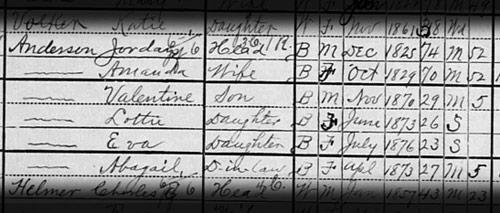 Katie Daughter W F Nov 1861 38 Wd
Anderson Jordan 6 Head B M Dec 1825 74 M 52
Amanda Wife B F Oct 1829 70 M 52
Valentine Son B M Nov 1870 29 M 5
Lottie Daughter B F June 1873 26 S
Eva Daughter B F July 1876 23 S
Abagail D-in-law B F Apl 1873 27 M 5
Helmer Head W M 1857 43 M 23